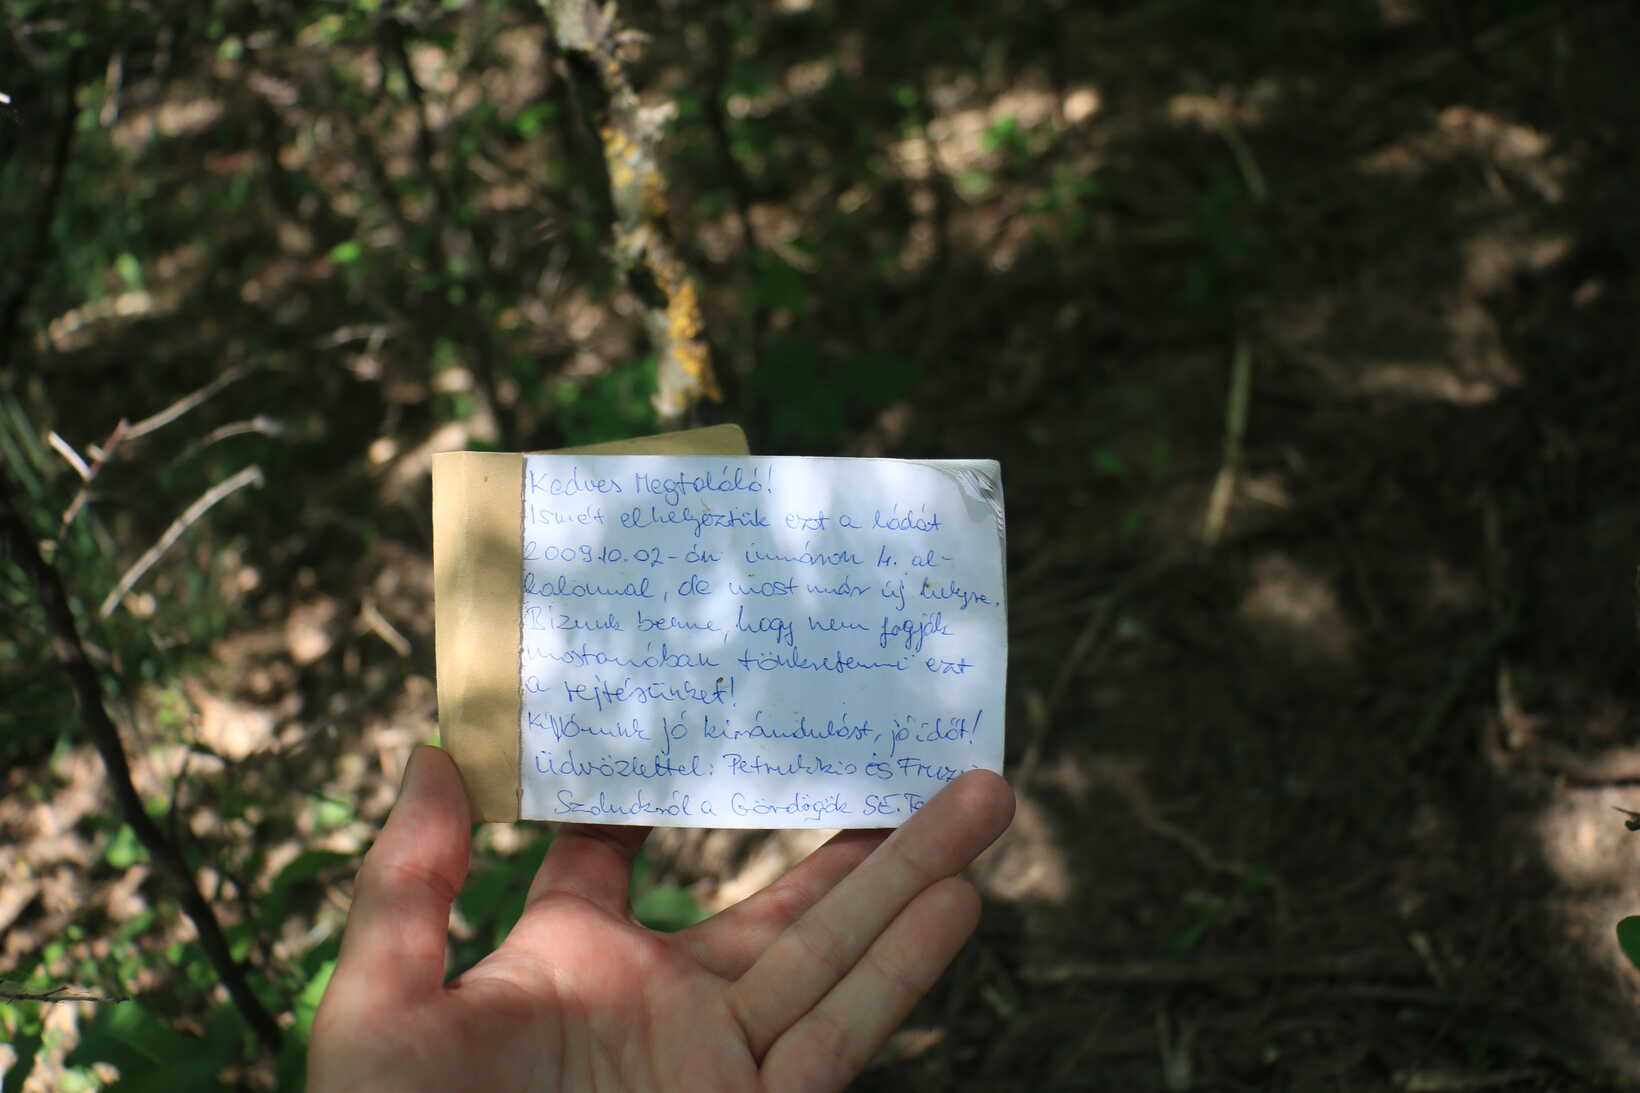 Kedves Megtaláló!
Ismét elhelyeztük ezt a ládát
2009.10.02-án immáron 4. al-
kalommal, de most már új helyre.
Bízunk benne, hogy nem fogják
mostanában tönkretenni ezt
a rejtésünket!
Kívánunk jó kirándulást, jó időt!
Üdvözlettel: Petrukkio és Fruzsi
Szolnokról a Gördögök SE.